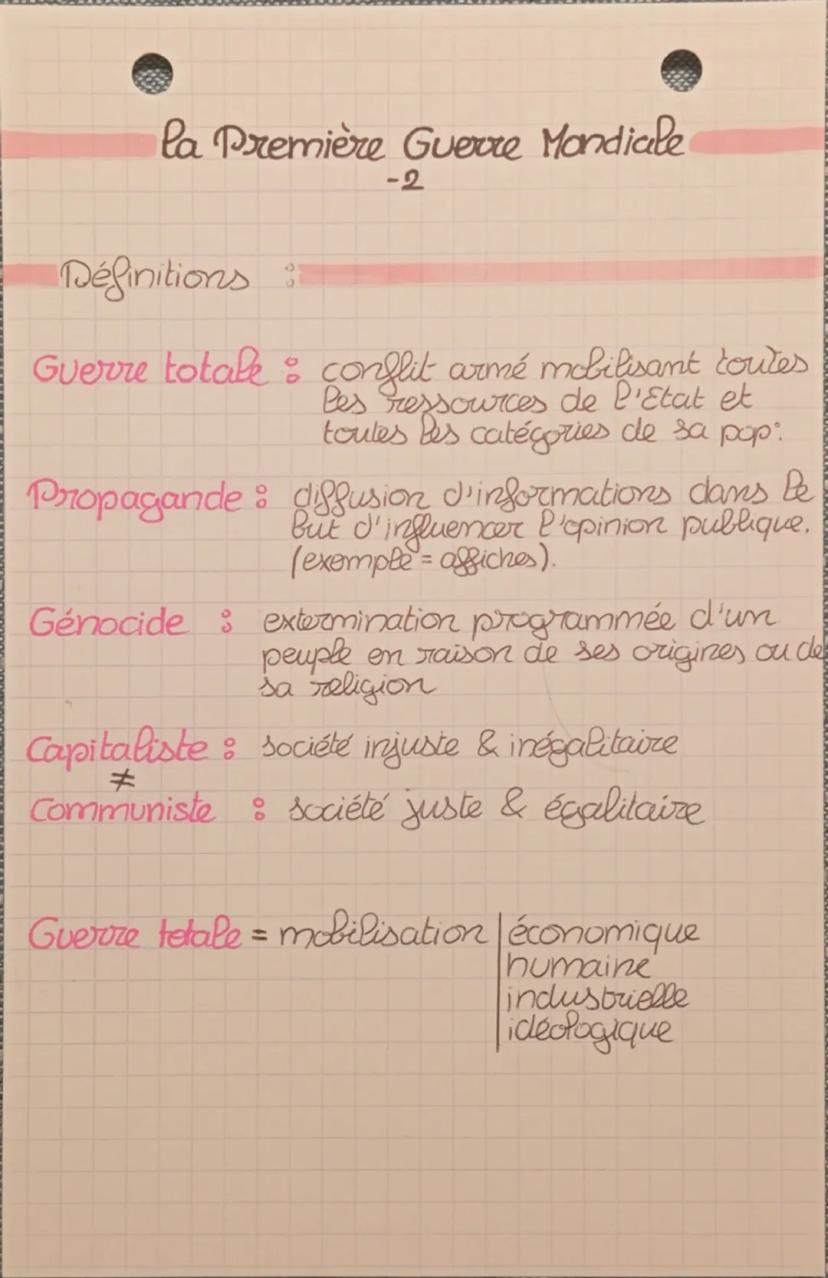 la Première Guerre Mondiale
-2
Définitions :
Guerre totale : conflit armé mobilisant toutes
les ressources de l'Etat et
toutes les catégories de sa pop°.
Propagande : diffusion d'informations dans le
but d'influencer l'opinion publique.
(exemple = affiches).
Génocide : extermination programmée d'un
peuple en raison de ses origines ou de
sa religion
Capitaliste : société injuste & inégalitaire
≠
Communiste : société juste & égalitaire
Guerre totale = mobilisation | économique
humaine
industrielle
idéologique